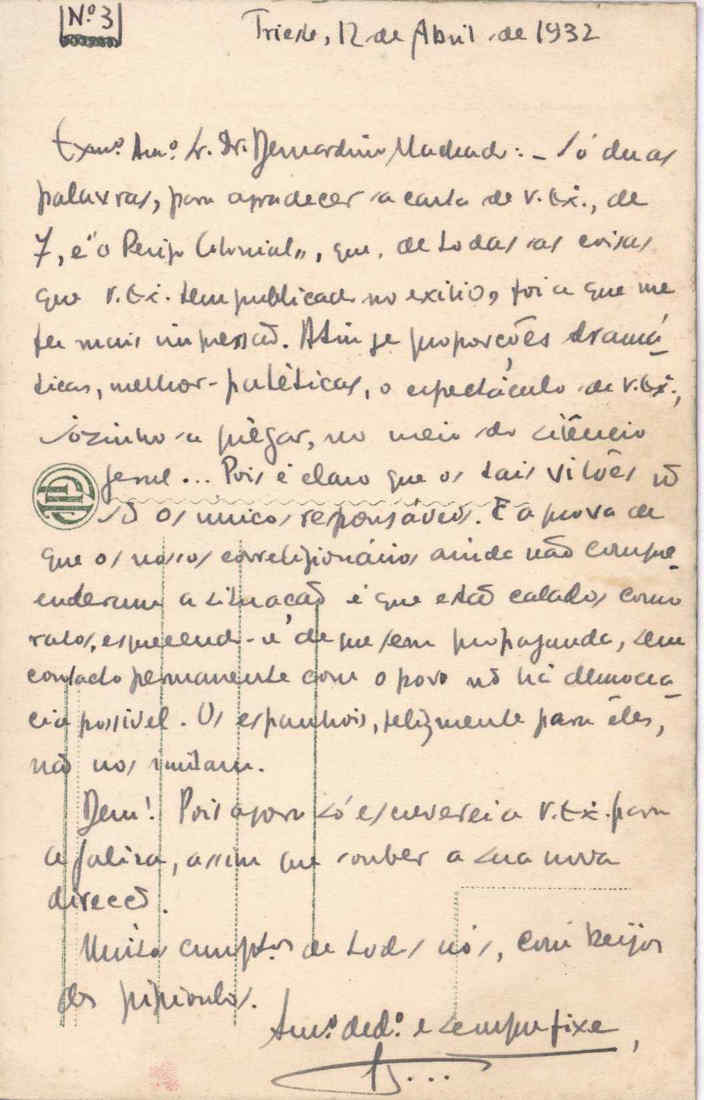 Nº 3
Trieste, 12 de Abril de 1932
Exmº Amº Sr. Dr. Bernardino Machado: – Só duas
palavras, para agradecer a carta de V. Ex., de
7, e "o Perigo Colonial", que, de todas as coisas
que V. Ex. tem publicado no exilio, foi a que me
fez mais impressão. Atinge proporções dramá-
ticas, melhor – patéticas, o espectáculo de V. Ex.,
sòzinho a prègar, no meio do silêncio
geral... Pois é claro que os tais vilões não
são os unicos responsáveis. E a prova de
que os nossos correligionários ainda não compre-
enderam a situação é que estão calados como
ratos, esquecendo-se de que sem propaganda, sem
contacto permanente com o povo não há democra-
cia possivel. Os espanhois, felizmente para êles,
não nos imitam.
Bem! Pois agora só escreverei a V. Ex. para
a Galiza, assim que souber a sua nova
direcção.
Muitos cumptos de todos nós, com beijos
dos
Amº dedº e sempre fixe,
B...